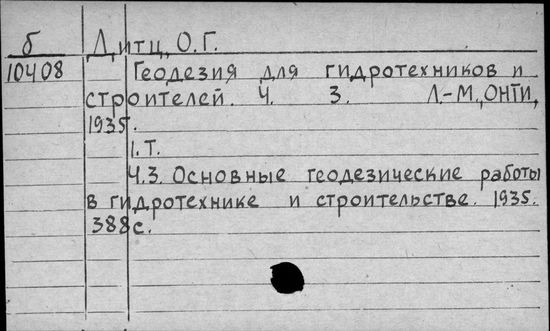 б Дитц, О.Г.
10408 Геодезия для гидротехников и
строителей. Ч. 3. Л.-М., ОНТИ,
1935.
1.Т.
Ч.3. Основные геодезические работы
в гидротехнике и строительстве. 1935.
388с.